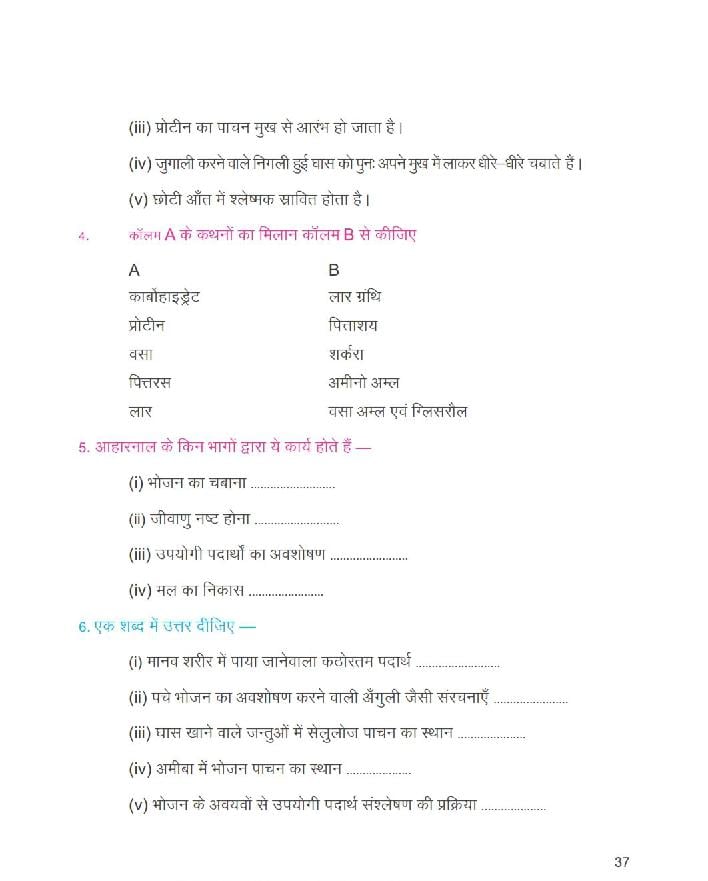 (iii) प्रोटीन का पाचन मुख से आरंभ हो जाता है।
(iv) जुगाली करने वाले निगली हुई घास को पुनः अपने मुख में लाकर धीरे–धीरे चबाते हैं।
(v) छोटी आँत में श्लेष्मक स्रावित होता है।
4. कॉलम A के कथनों का मिलान कॉलम B से कीजिए
A B
कार्बोहाइड्रेट लार ग्रंथि
प्रोटीन पित्ताशय
वसा शर्करा
पित्तरस अमीनो अम्ल
लार वसा अम्ल एवं ग्लिसरौल
5. आहारनाल के किन भागों द्वारा ये कार्य होते हैं —
(i) भोजन का चबाना ..........................
(ii) जीवाणु नष्ट होना ..........................
(iii) उपयोगी पदार्थों का अवशोषण ........................
(iv) मल का निकास .......................
6. एक शब्द में उत्तर दीजिए —
(i) मानव शरीर में पाया जानेवाला कठोरतम पदार्थ ..........................
(ii) पचे भोजन का अवशोषण करने वाली अँगुली जैसी संरचनाएँ .......................
(iii) घास खाने वाले जन्तुओं में सेलुलोज पाचन का स्थान .....................
(iv) अमीबा में भोजन पाचन का स्थान ....................
(v) भोजन के अवयवों से उपयोगी पदार्थ संश्लेषण की प्रक्रिया ....................
37